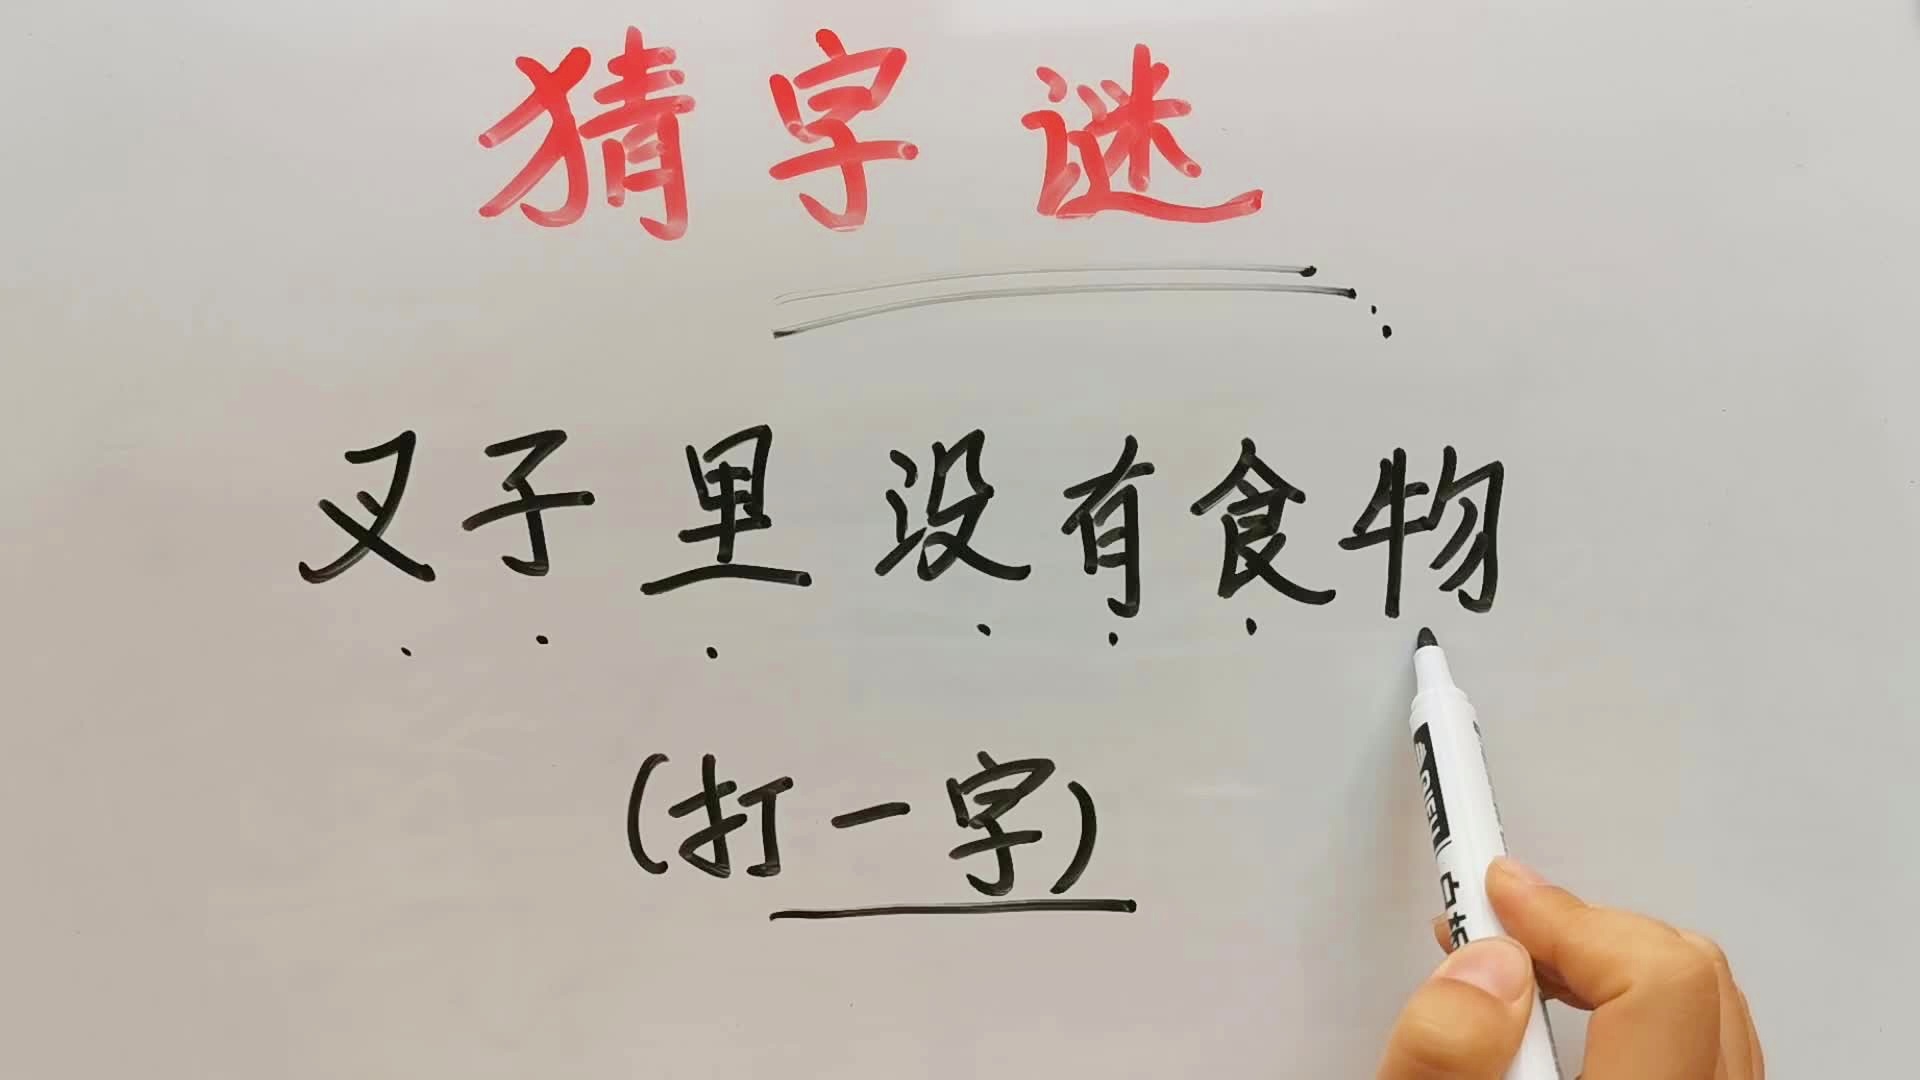 猜字谜
叉子里没有食物
(打一字)